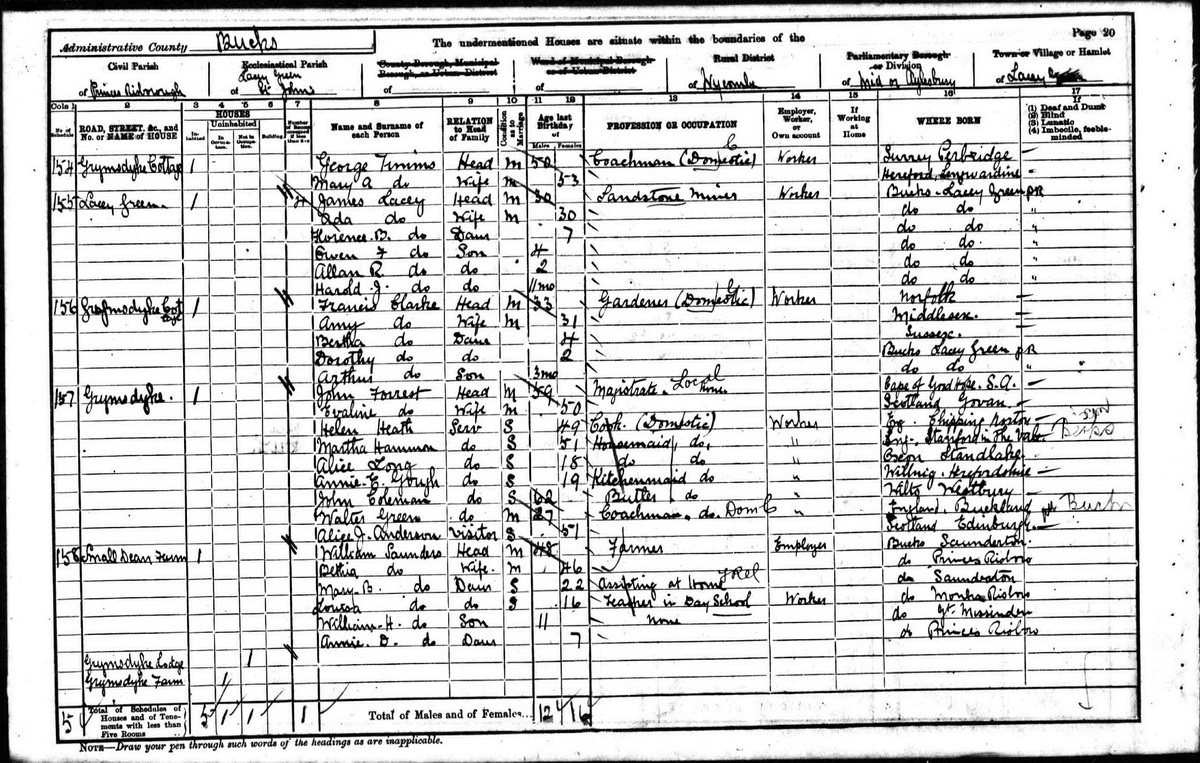 Administrative County Bucks
The undermentioned Houses are situate within the boundaries of the
Page 20
Civil Parish
of Princes Risborough
Ecclesiastical Parish
of Lacey Green St John's
County Borough, Municipal Borough, or Urban District
of
Ward of Municipal Borough or of Urban District
of
Rural District
of Wycombe
Parliamentary Borough or Division
of Mid or Aylesbury
Town or Village or Hamlet
of Lacey Green
Cols 1 2 3 4 5 6 7 8 9 10 11 12 13 14 15 16 17
No. of Schedule
ROAD, STREET, &c., and No. or NAME of HOUSE
HOUSES
Inhabited
Uninhabited
In Occupation
Not in Occupation
Building
Number of Rooms occupied if less than five
Name and Surname of each Person
RELATION to Head of Family
Condition as to Marriage
Age last Birthday of
Males Females
PROFESSION OR OCCUPATION
Employer, Worker, or Own account
If Working at Home
WHERE BORN
(1) Deaf and Dumb
(2) Blind
(3) Lunatic
(4) Imbecile, feeble-minded
154 Grymsdyke Cottage 1 George Timms Head M 50 Coachman (Domestic) Worker Surrey
Mary A. do Wife M 53 Hereford, Leyntwardine
155 Lacey Green 1 4 James Lacey Head M 30 Sandstone Miner Worker Bucks - Lacey Green
Ada do Wife M 30 do do
Florence. B. do Daur 7 do do
Owen F do Son 4 do do
Allan R do do 2 do do
Harold J. do do 11mo do do
156 Grymsdyke Cottage 1 Francis Clarke Head M 33 Gardener (Domestic) Worker Norfolk
Amy do Wife M 31 Middlesex.
Bertha do Daur 4 Sussex.
Dorothy do do 2 Bucks Lacey Green
Arthur do Son 3mo do do
157 Grymsdyke. 1 John Forrest Head M 59 Magistrate. Local Cape of Good Hope. S.A.
Evaline do Wife M 50 Scotland Govan.
Helen Heath Serv S 49 Cook. (Domestic) Worker Eng. Chipping Norton
Martha Hammon do S 51 Housemaid, do, " Eng. Stanford in the Vale Berks
Alice Long do S 18 do do " Oxon Standlake
Annie. E. Gough do S 19 Kitchenmaid do " Herefordshire
John Coleman do S 62 Butler do " Wilts Westbury
Walter Green do M 27 Coachman. do. Dom " England, Buckland Bucks
Alice J. Anderson Visitor S 51 Scotland Edinburgh
158 Small Dean Farm 1 William Saunders Head M 48 Farmer Employer Bucks Saunderton
do Wife. M 46 do Princes Risboro
Mary B. do Daur S 22 Assisting at Home do Saunderton
Louisa do do S 16 Teacher in Day School Worker do Monks Risboro
William. H. do Son 11 none do Gt. Missenden
Annie. D. do Daur 7 do Princes Risboro
Grymsdyke Lodge 1
Grymsdyke Farm 1
5 Total of Schedules of Houses and of Tenements with less than Five Rooms 5 1 1 1 Total of Males and of Females... 12 16
NOTE—Draw your pen through such words of the headings as are inapplicable.